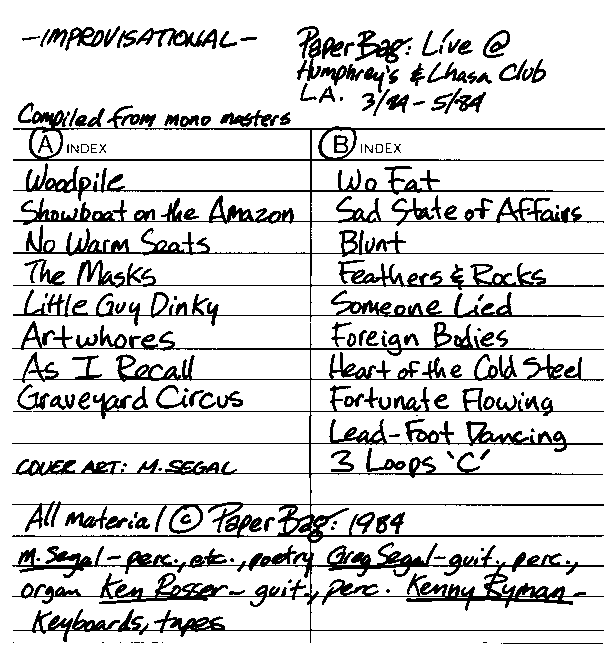 -IMPROVISATIONAL-
PaperBag: Live @
Humphrey's & Lhasa Club
L.A. 3/84-5/84
Compiled from mono masters
A INDEX
Woodpile
Showboat on the Amazon
No Warm Seats
The Masks
Little Guy Dinky
Artwhores
As I Recall
Graveyard Circus
COVER ART: M.SEGAL
B INDEX
Wo Fat
Sad State of Affairs
Blunt
Feathers & Rocks
Someone Lied
Foreign Bodies
Heart of the Cold Steel
Fortunate Flowing
Lead-Foot Dancing
3 Loops 'C'
All material © PaperBag: 1984
M.Segal-perc., etc., poetry Greg Segal-guit., perc.,
organ Ken Rosser-guit., perc. Kenny Ryman-
Keyboards, tapes